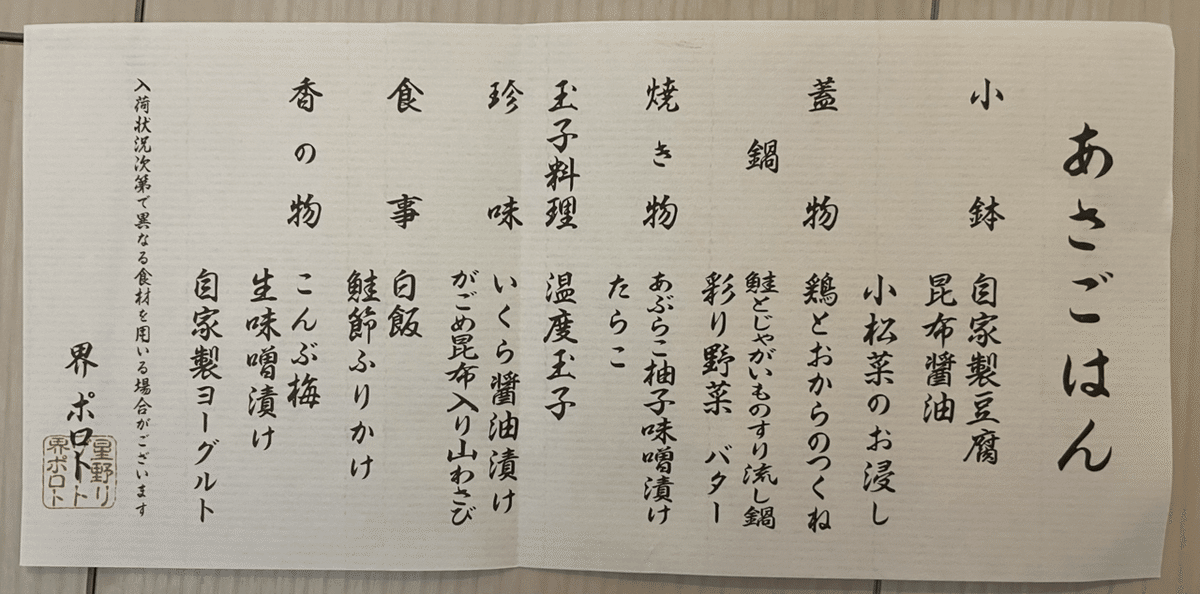 あさごはん
小鉢 自家製豆腐
昆布醤油
小松菜のお浸し
蓋物 鶏とおからのつくね
鍋 鮭とじゃがいものすり流し鍋
彩り野菜 バター
焼き物 あぶらこ柚子味噌漬け
たらこ
玉子料理 温度玉子
珍味 いくら醤油漬け
がごめ昆布入り山わさび
食事 白飯
鮭節ふりかけ
香の物 こんぶ梅
生味噌漬け
自家製ヨーグルト
入荷状況次第で異なる食材を用いる場合がございます
界 ポロト
星野リ
界ポロト